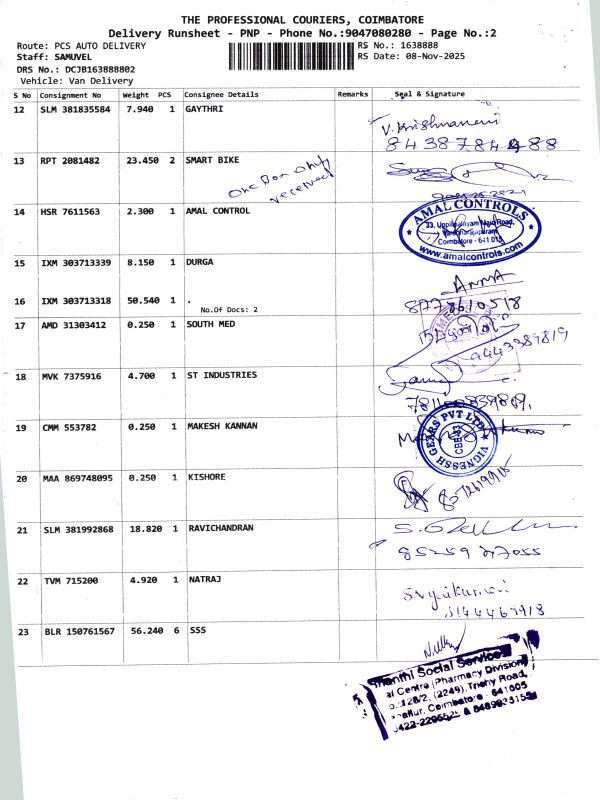 THE PROFESSIONAL COURIERS, COIMBATORE
Delivery Runsheet - PNP - Phone No.:9047080280 - Page No.:2
Route: PCS AUTO DELIVERY
RS No.: 1638888
Staff: SAMUVEL
RS Date: 08-Nov-2025
DRS No.: DCJB163888802
Vehicle: Van Delivery
S No Consignment No Weight PCS Consignee Details Remarks Seal & Signature
12 SLM 381835584 7.940 1 GAYTHRI
13 RPT 2081482 23.450 2 SMART BIKE
One Box Only
received
14 HSR 7611563 2.300 1 AMAL CONTROL
AMAL CONTROLS
Coimbatore - 641 015
www.amalcontrols.com
15 IXM 303713339 8.150 1 DURGA
16 IXM 303713318 50.540 1 .
No.Of Docs: 2
17 AMD 31303412 0.250 1 SOUTH MED
9443389819
18 MVK 7375916 4.700 1 ST INDUSTRIES
19 CMM 553782 0.250 1 MAKESH KANNAN
VIGNESSH GEARS PVT LTD
20 MAA 869748095 0.250 1 KISHORE
21 SLM 381992868 18.820 1 RAVICHANDRAN
85259 27055
22 TVM 715200 4.920 1 NATRAJ
23 BLR 150761567 56.240 6 SSS
Shanthi Social Services
al Centre (Pharmacy Division)
128/2, (2249), Trichy Road,
Coimbatore - 641005